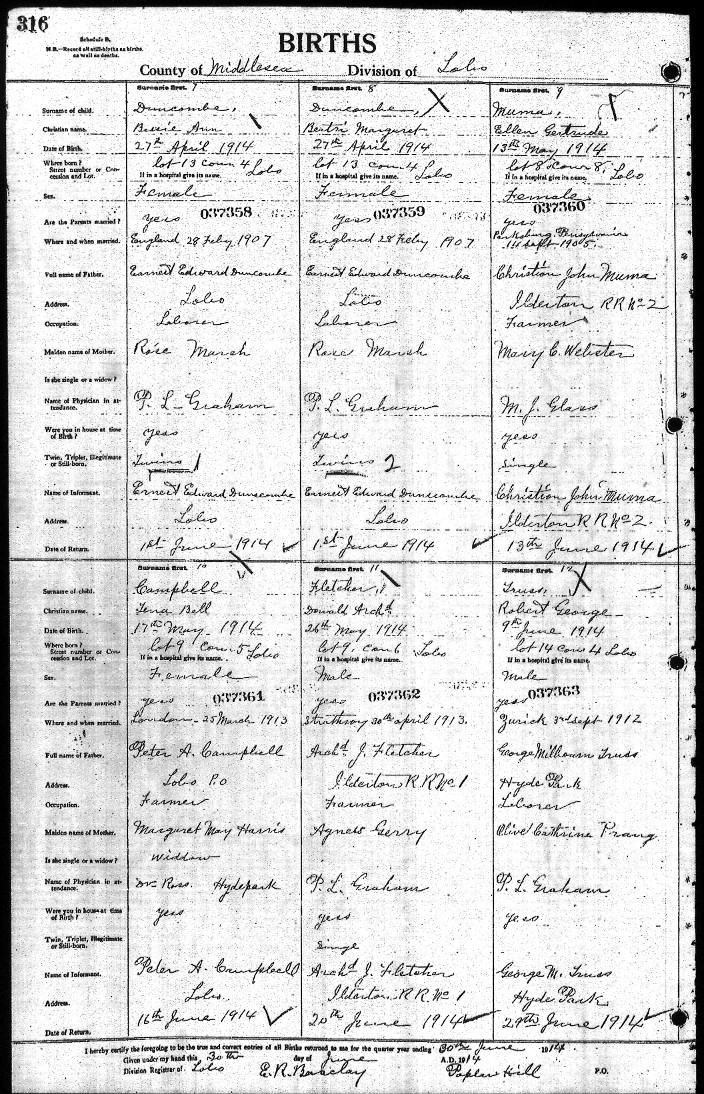 316
Schedule B.
N.B.—Record all still-births as births as well as deaths.
BIRTHS
County of Middlesex Division of Lobo
Surname first. 7 Surname first. 8 Surname first. 9
Surname of child. Duncombe, Duncombe, Muma,
Christian name. Bessie Ann Margaret Ellen Gertrude
Date of Birth. 27th April 1914 27th April 1914 13th May 1914
Where born? lot 13 con 4 Lobo lot 13 con 4 Lobo lot 8 con 8, Lobo
Street number or Concession and Lot. If in a hospital give its name. If in a hospital give its name. If in a hospital give its name.
Sex. Female Female Female
037358 037359 037360
Are the Parents married? yess yess yess
Where and when married. England 28 Feby 1907 England 28 Feby 1907 14 Sept 1905.
Full name of Father. Ernest Edward Duncombe Ernest Edward Duncombe Christian John Muma
Address. Lobo Lobo Ilderton R R No 2
Occupation. Laborer Laborer Farmer
Maiden name of Mother. Rose Marsh Rose Marsh Mary C. Webster
Is she single or a widow?
Name of Physician in attendance. P. L. Graham P. L. Graham M. J. Glass
Were you in house at time of Birth? yess yess yess
Twin, Triplet, Illegitimate or Still-born. Twins 1 Twins 2 Single
Name of Informant. Ernest Edward Dunscombe Ernest Edward Dunscombe Christian John Muma
Address. Lobo Lobo Ilderton R R No 2.
Date of Return. 1st June 1914 1st June 1914 13th June 1914
Surname first. 10 Surname first. 11 Surname first. 12
Surname of child. Campbell Fletcher, Truss,
Christian name. Lena Bell Donald Archd Robert George
Date of Birth. 17th May 1914 26th May 1914 9th June 1914
Where born? lot 9 con 5 Lobo lot 9, con 6 Lobo lot 14 con 4 Lobo
Street number or Concession and Lot. If in a hospital give its name. If in a hospital give its name. If in a hospital give its name.
Sex. Female Male Male
037361 037362 037363
Are the Parents married? yess yess yess
Where and when married. London 25 March 1913 30th april 1913. Zurick 3rd Sept 1912
Full name of Father. Peter A. Campbell Archd J. Fletcher George Milbourn Truss
Address. Lobo P.O Ilderton R R No 1 Hyde Park
Occupation. Farmer Farmer Laborer
Maiden name of Mother. Margaret May Harris Agness Gerry Olive Cathrine Prang
Is she single or a widow? Widdow
Name of Physician in attendance. Dr Ross. Hydepark P. L. Graham P. L. Graham
Were you in house at time of Birth? yess yess yess
Twin, Triplet, Illegitimate or Still-born. Singe
Name of Informant. Peter A. Campbell Archd J. Fletcher George M. Truss
Address. Lobo. Ilderton, R R No 1 Hyde Park
Date of Return. 16th June 1914 20th June 1914 29th June 1914
I hereby certify the foregoing to be the true and correct entries of all Births returned to me for the quarter year ending 30th June 1914
Given under my hand this 30th day of June A.D. 1914
Division Registrar of Lobo E. R. Barclay Poplar Hill P.O.